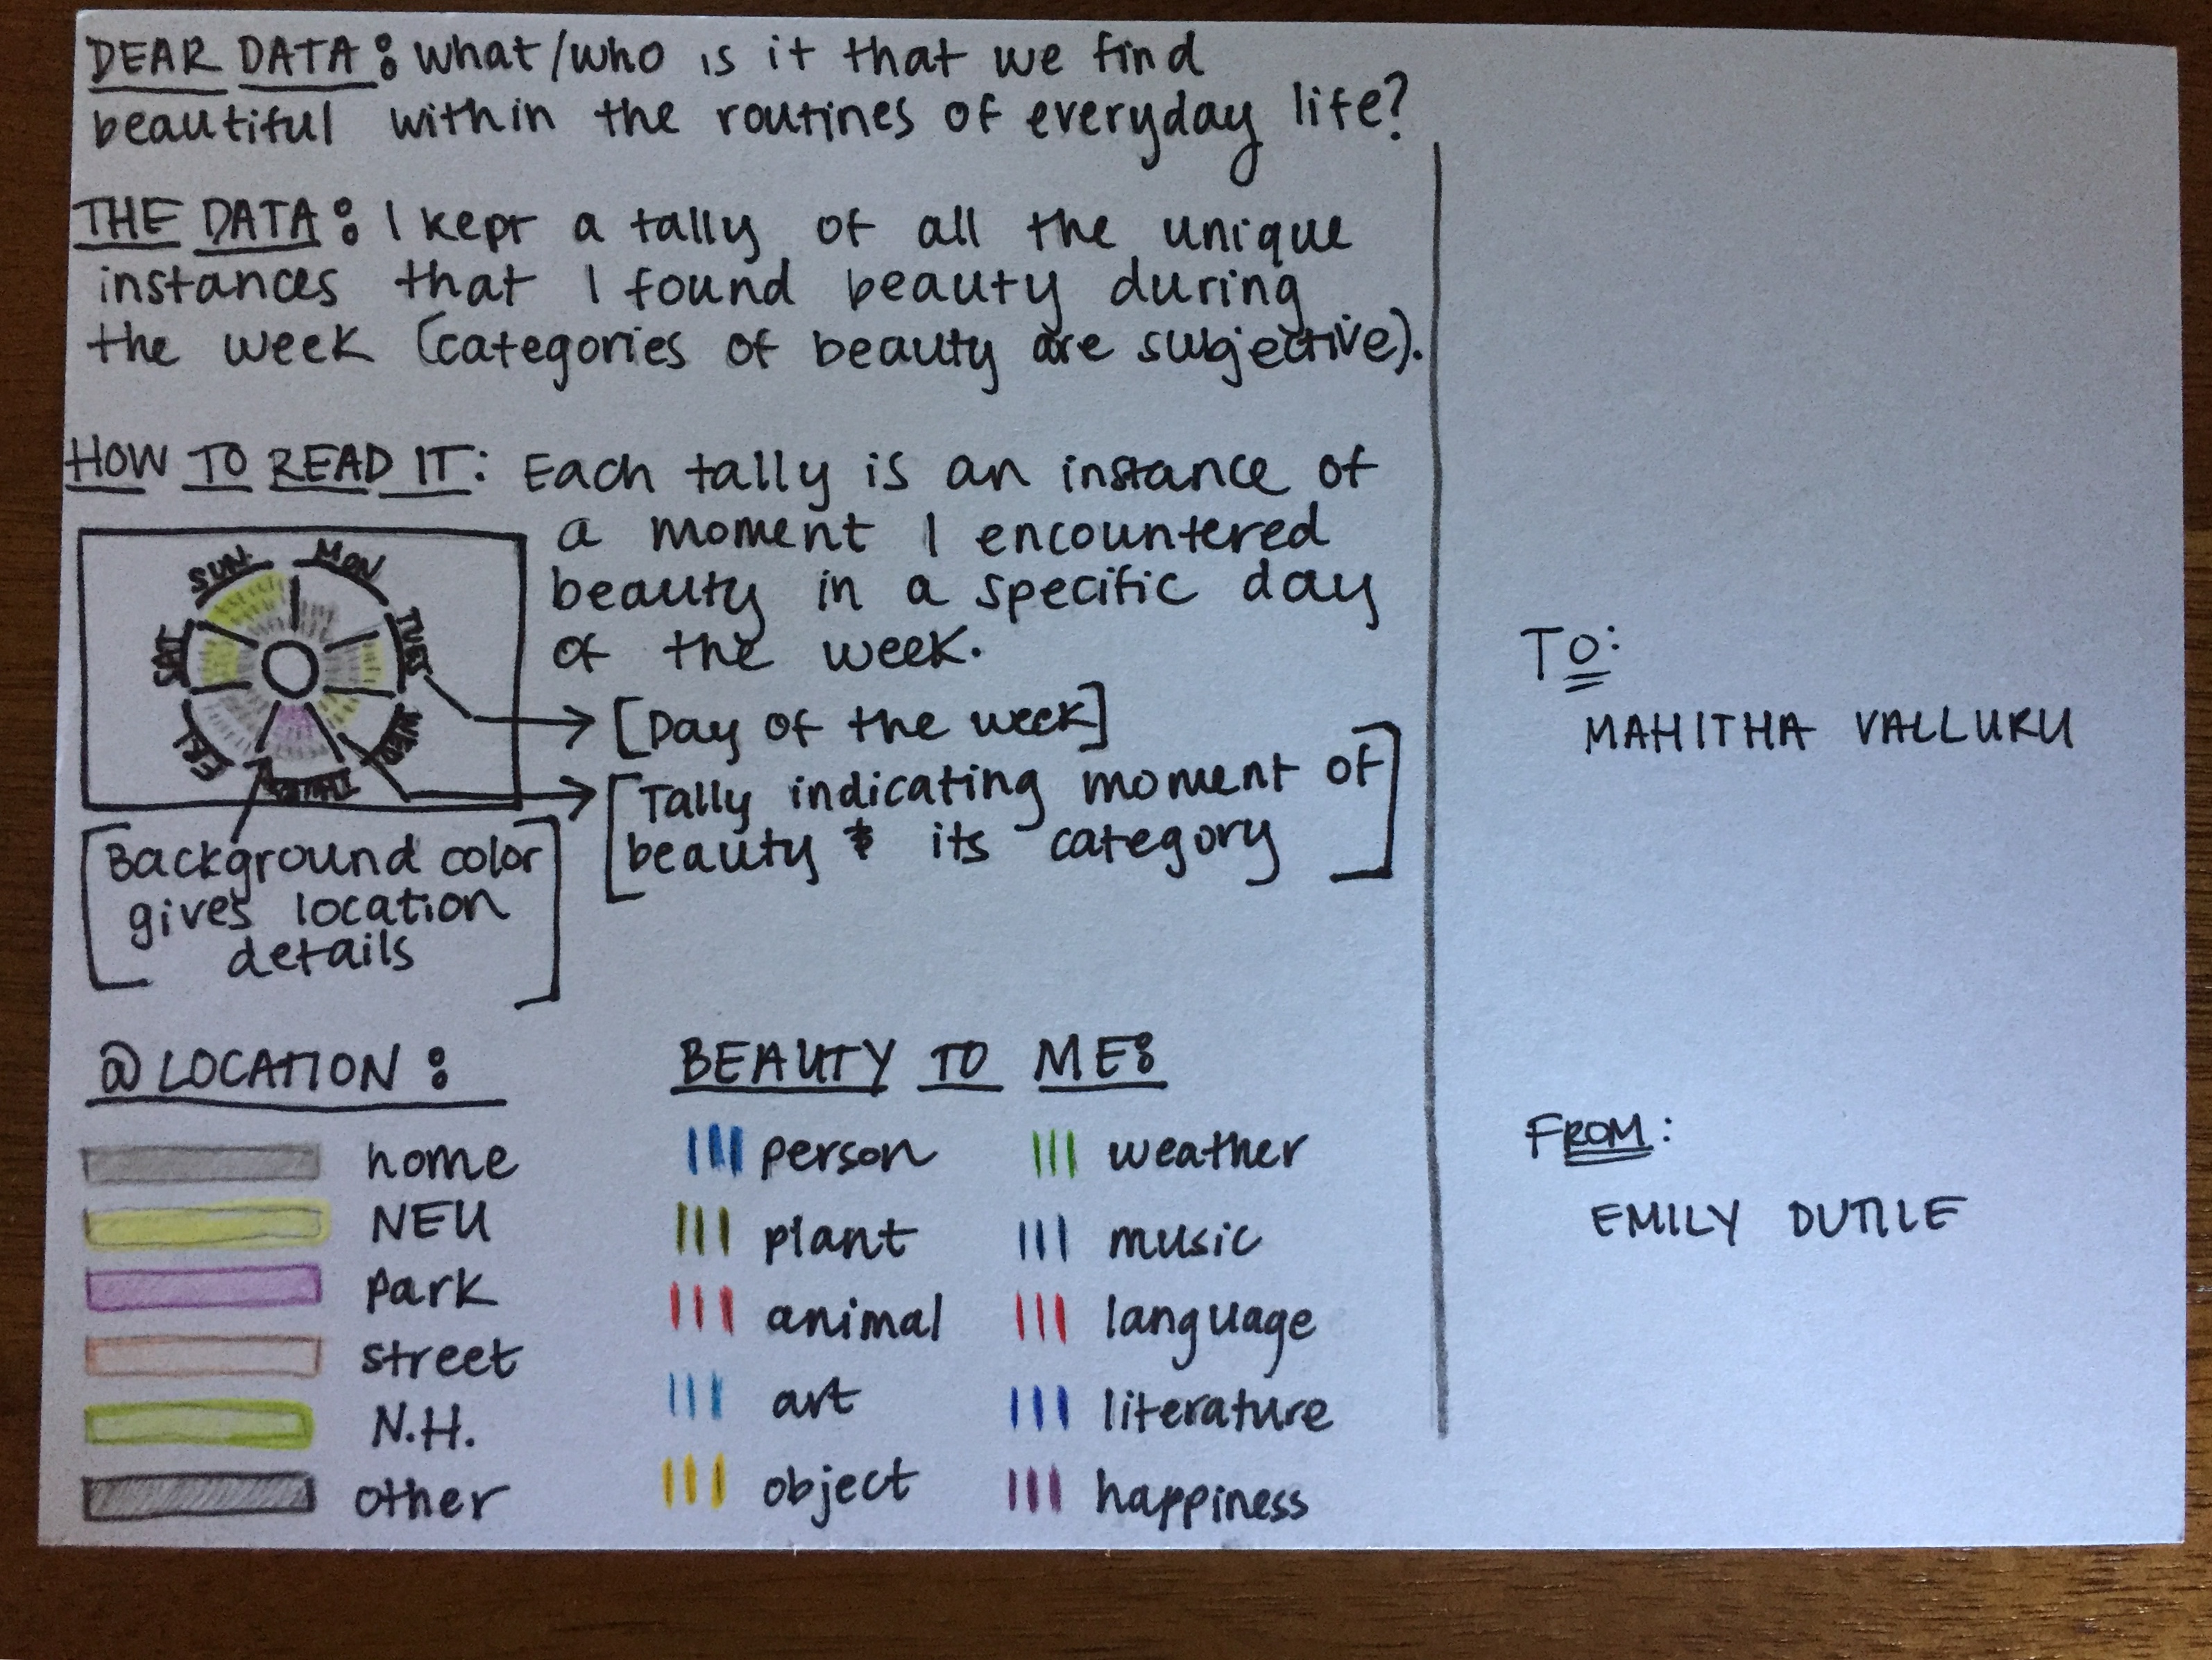 DEAR DATA: what/who is it that we find
beautiful within the routines of everyday life?
THE DATA: I kept a tally of all the unique
instances that I found beauty during
the week (categories of beauty are subjective).
HOW TO READ IT: Each tally is an instance of
a moment I encountered
beauty in a specific day
of the week.
SUN
MON
TUES
WED
THURS
FRI
SAT
[Day of the week]
[Tally indicating moment of
beauty & its category]
[Background color
gives location
details]
@LOCATION:
home
NEU
park
street
N.H.
other
BEAUTY TO ME:
person
plant
animal
art
object
weather
music
language
literature
happiness
TO:
MAHITHA VALLURU
FROM:
EMILY DUTILE